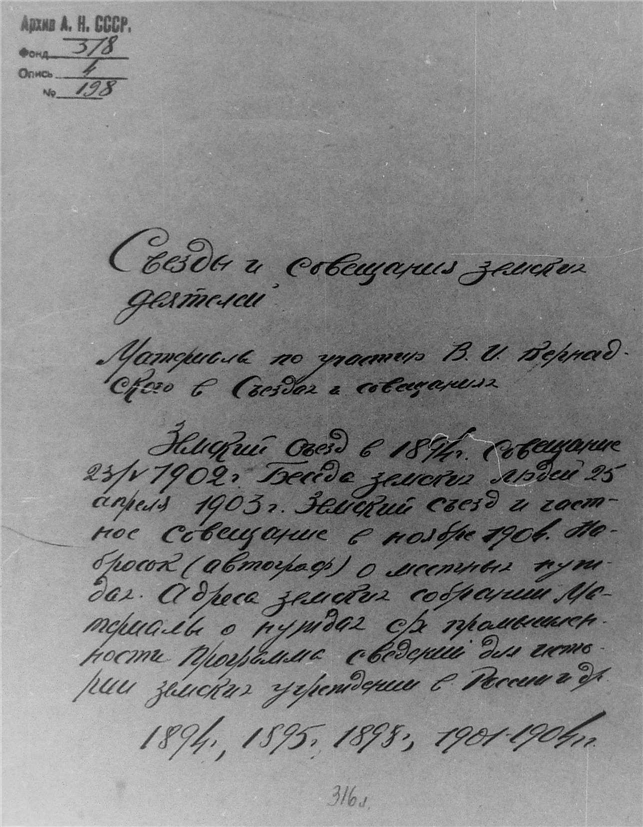 Архив А. Н. СССР.
Фонд 518
Опись 4
№ 198
Съезды и совещания земских
деятелей
Материалы по участию В. И. Вернад-
ского в Съездах и совещаниях
Земский съезд в 1894г. Совещание
23/V 1902г. Беседа земских людей 25
апреля 1903г. Земский съезд и част-
ное совещание в ноябре 1904. На-
бросок (автограф) о местных нуж-
дах. Адреса земских собраний Ма-
териалы о нуждах с/х промышлен-
ности Программа сведений для исто-
рии земских учреждений в России и др.
1894г., 1895г. 1898г., 1901-1904гг.
316л.